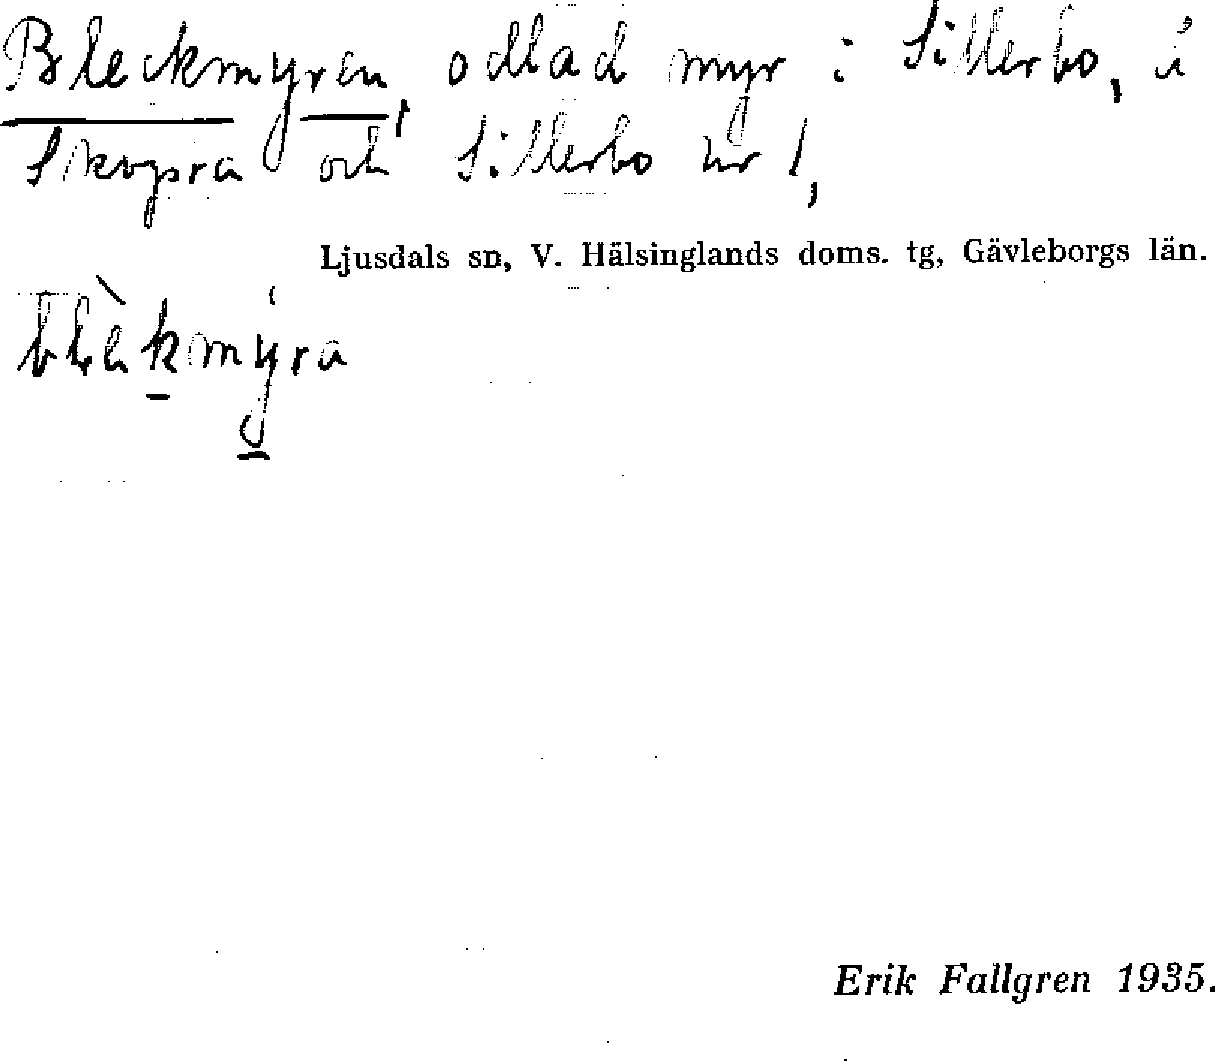 Bleckmyren, odlad myr i Sillerbo, å
och Sillerbo nr 1,
Ljusdals sn, V. Hälsinglands doms. tg, Gävleborgs län.
Erik Fallgren 1935.